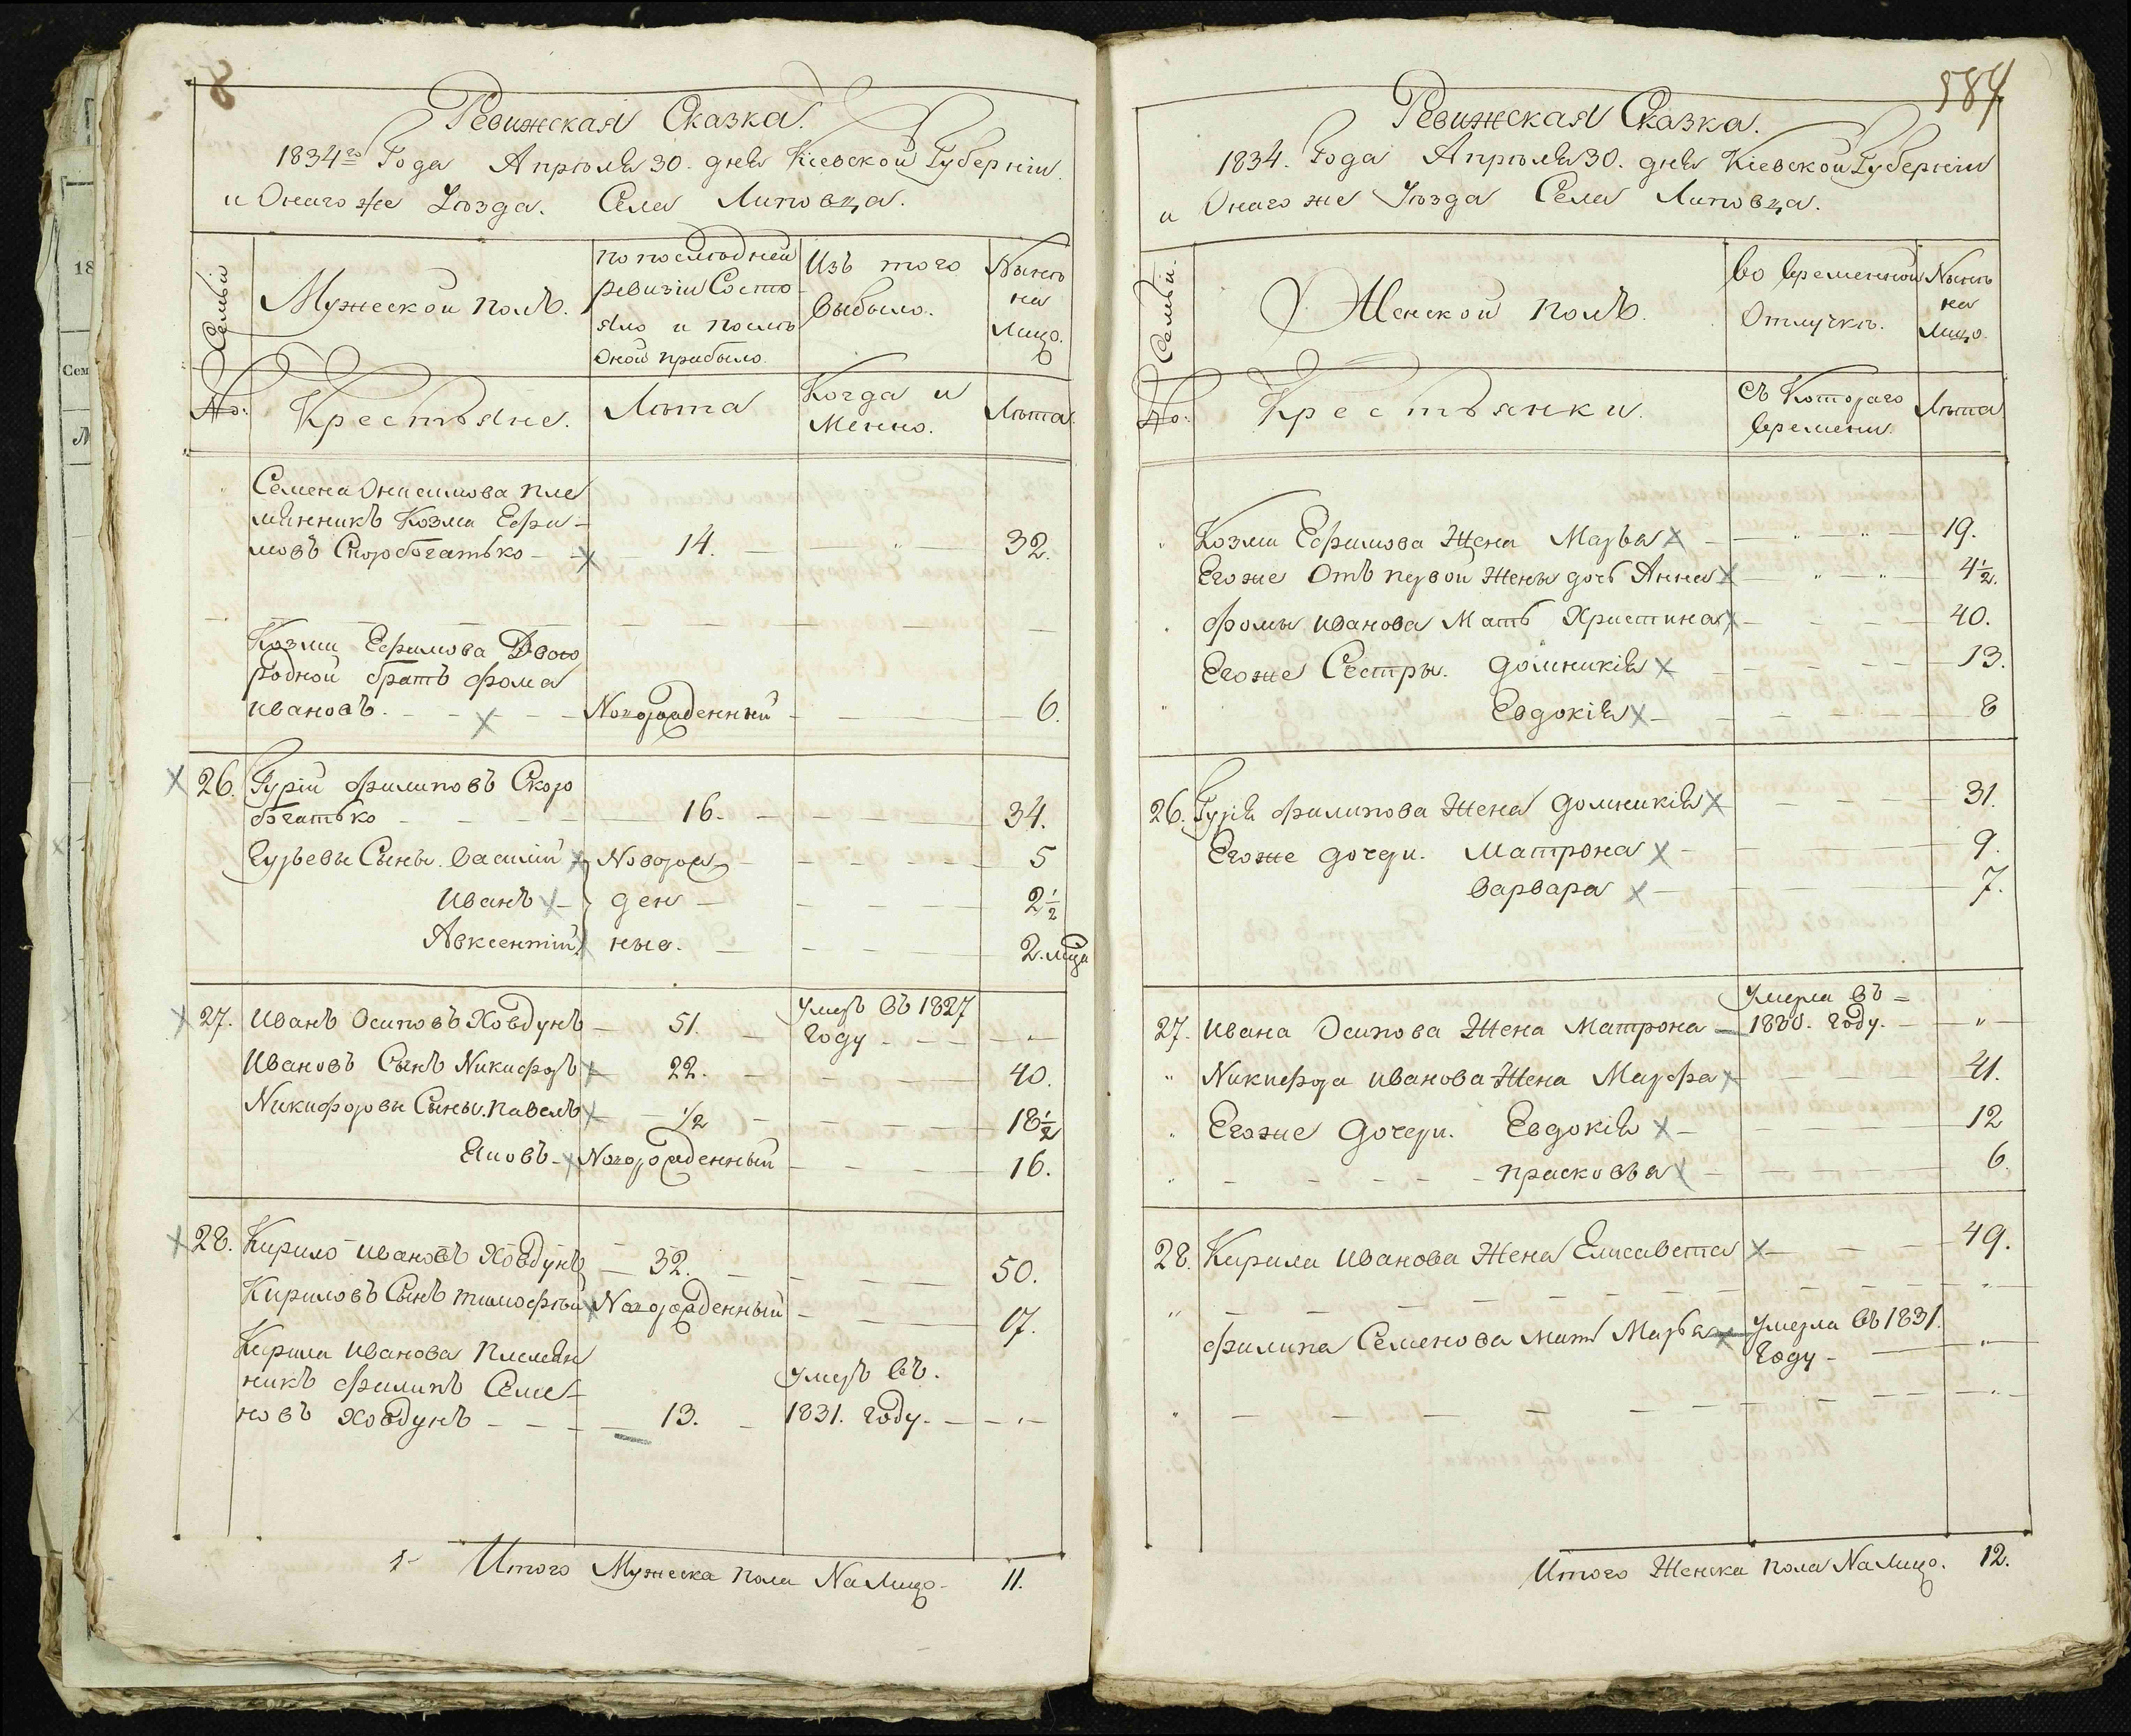 8
Ревижская Сказка.
1834го Года Апреля 30. дня Кіевской Губерніи
и Онаго же Уезда. Села Липовца.
№: Семьи
Мужеской полъ.
по последней
ревизіи Состо
яло и после
оной прибыло.
Изъ того
выбыло.
Ныне
на
Лицо.
Крестьяне.
Лета
Когда и
Менно.
Лета.
Семена Онисимова пле
мянникъ Козма Ефи-
мовъ Скоробогатько 14. 32.
Козми Ефимова Двою
родной братъ фома
ивановъ. Новорожденный 6.
26. Гурій филиповъ Скоро
богатько 16. 34.
Гурьевы Сыны. василій Новорож 5
иванъ ден 2 1/2
Авксентій ные. 2. меца
27. иванъ Осиповъ Ховдунъ 51. умеръ въ 1827
году
Ивановъ Сынъ Никифоръ 22. 40.
Никифоровы Сыны. павелъ 1/2 18 1/2
Яковъ Новорожденный 16.
28. Кирило ивановъ Ховдунъ 32. 50.
Кириловъ Сынъ тимофей Новорожденный 17.
Кирила иванова племян
никъ филипъ Семе-
новъ Ховдунъ 13. умеръ въ.
1831. году.
Итого Мужеска пола На Лицо 11.
584
Ревижская Сказка.
1834. Года Апреля 30. дня Кіевской Губерніи
и Онаго же Уезда Села Липовца.
№: Семьи.
Женской полъ.
во временной
Отлучке.
Ныне
на
Лицо.
Крестьянки.
Съ Котораго
времени.
Лета
Козми Ефимова Жена Марья 19.
Егоже Отъ первой Жены дочь Анна 4 1/2.
фомы иванова Мать Христина 40.
Егоже Сестры. домникія 13.
Евдокія 8
26. Гурія филипова Жена домникія 31.
Егоже дочери. Матрона 9.
варвара 7.
27. ивана Осипова Жена Матрона умерла въ
1830. году.
Никифора иванова Жена Марфа 41.
Егоже дочери. Евдокія 12
прасковья 6.
28. Кирила иванова Жена Елисавета 49.
филипа Семенова мать Марья умерла въ 1831.
году
Итого Женска пола На Лицо. 12.